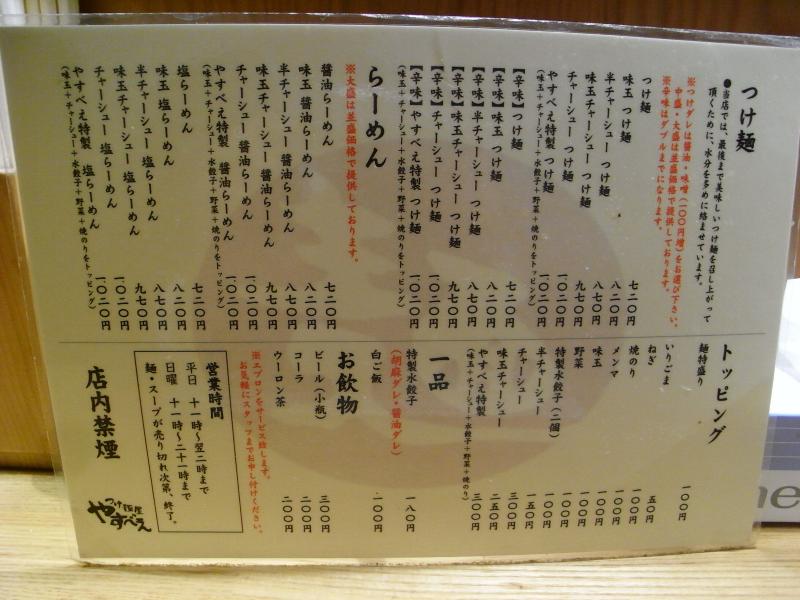 つけ麺
●当店では、最後まで美味しいつけ麺を召し上がって
頂くために、水分を多めに絡ませています。
※つけダレは醤油・味噌(一〇〇円増)をお選び下さい。
中盛・大盛は並盛価格で提供しております。
※辛味はダブルまでになります。
つけ麺 七二〇円
味玉 つけ麺 八二〇円
半チャーシュー つけ麺 八七〇円
味玉チャーシュー つけ麺 九七〇円
チャーシュー つけ麺 一、〇二〇円
やすべえ特製 つけ麺 一、〇二〇円
(味玉+チャーシュー+水餃子+野菜+焼のりをトッピング)
【辛味】つけ麺 七二〇円
【辛味】味玉 つけ麺 八二〇円
【辛味】半チャーシュー つけ麺 八七〇円
【辛味】味玉チャーシュー つけ麺 九七〇円
【辛味】チャーシュー つけ麺 一、〇二〇円
【辛味】やすべえ特製 つけ麺 一、〇二〇円
(味玉+チャーシュー+水餃子+野菜+焼のりをトッピング)
らーめん
※大盛は並盛価格で提供しております。
醤油らーめん 七二〇円
味玉 醤油らーめん 八二〇円
半チャーシュー 醤油らーめん 八七〇円
味玉チャーシュー 醤油らーめん 九七〇円
チャーシュー 醤油らーめん 一、〇二〇円
やすべえ特製 醤油らーめん 一、〇二〇円
(味玉+チャーシュー+水餃子+野菜+焼のりをトッピング)
塩らーめん 七二〇円
味玉 塩らーめん 八二〇円
半チャーシュー 塩らーめん 八七〇円
味玉チャーシュー 塩らーめん 九七〇円
チャーシュー 塩らーめん 一、〇二〇円
やすべえ特製 塩らーめん 一、〇二〇円
(味玉+チャーシュー+水餃子+野菜+焼のりをトッピング)
トッピング
麺特盛り 一〇〇円
いりごま
ねぎ 五〇円
焼のり 一〇〇円
メンマ 一〇〇円
味玉 一〇〇円
野菜 一〇〇円
特製水餃子(二個) 一〇〇円
半チャーシュー 一五〇円
チャーシュー 三〇〇円
味玉チャーシュー 二五〇円
やすべえ特製 三〇〇円
(味玉+チャーシュー+水餃子+野菜+焼のり)
一品
特製水餃子 一八〇円
(胡麻ダレ・醤油ダレ)
白ご飯 一〇〇円
お飲物
ビール(小瓶) 三〇〇円
コーラ 二〇〇円
ウーロン茶 二〇〇円
※エプロンをサービス致します。
お気軽にスタッフまでお申し付けください。
営業時間
平日 十一時〜翌二時まで
日曜 十一時〜二十一時まで
麺・スープが売り切れ次第、終了。
店内禁煙
つけ麺屋
やすべえ